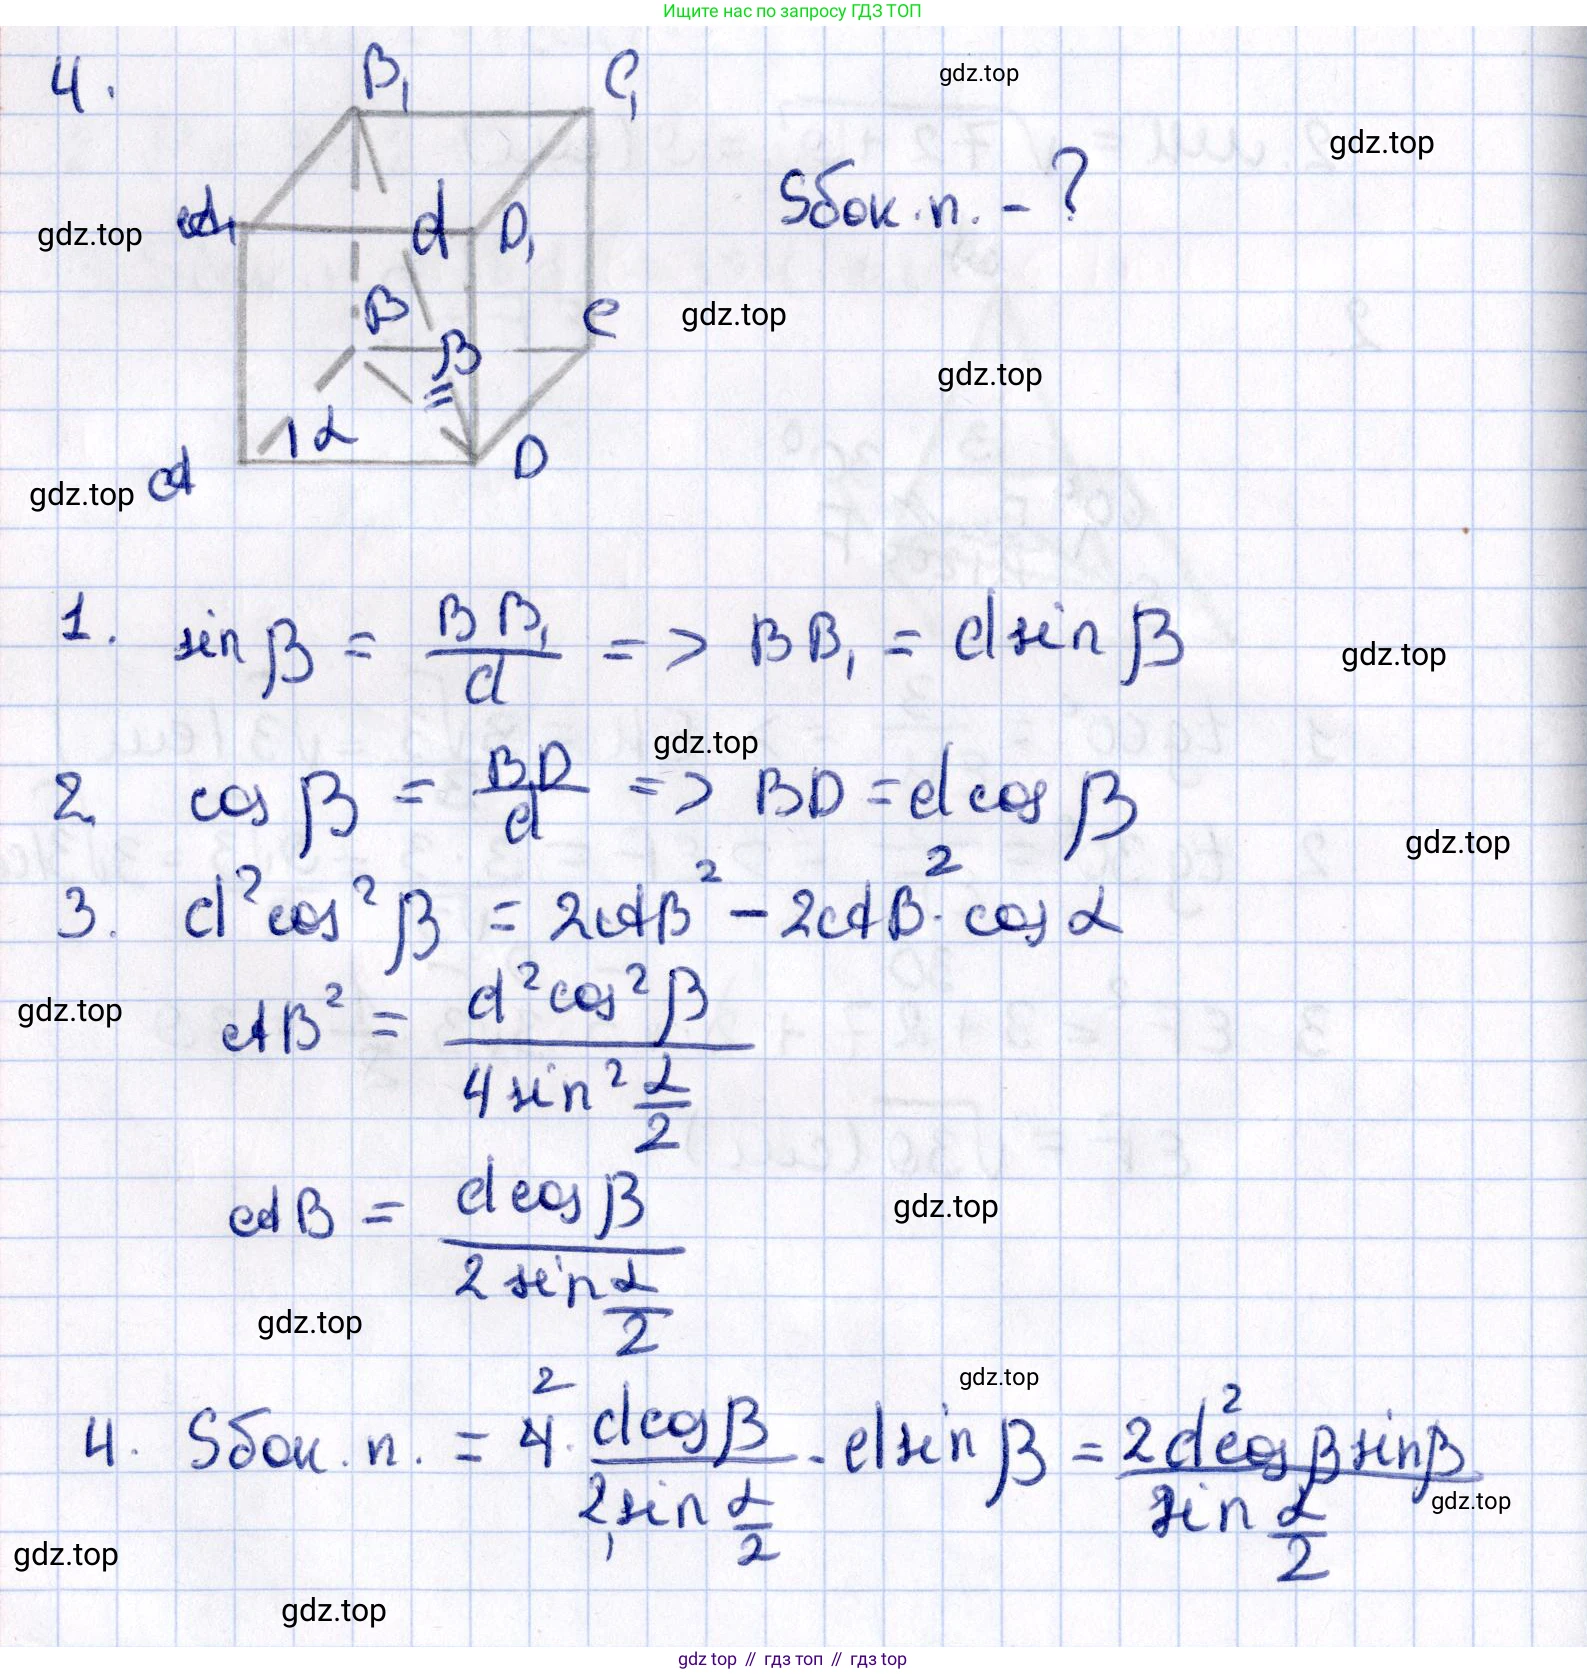 Ищите нас по запросу ГДЗ ТОП
4. B₁ C₁ gdz.top
gdz.top
A₁ d D₁ Sбок.п. - ?
gdz.top
B C gdz.top
β gdz.top
α
A D
gdz.top
1. sin β = BB₁/d => BB₁ = d sin β
gdz.top
gdz.top
2. cos β = BD/d => BD = d cos β
gdz.top
3. d² cos² β = 2AB² - 2AB² · cos α
gdz.top
AB² = d² cos² β / 4 sin² α/2
AB = d cos β / 2 sin α/2
gdz.top
gdz.top
gdz.top
4. Sбок.п. = 4 · d cos β / 2 sin α/2 · d sin β = 2d² cos β sin β / sin α/2
2 1
gdz.top
gdz.top
gdz.top
gdz top // гдз топ // gdz top